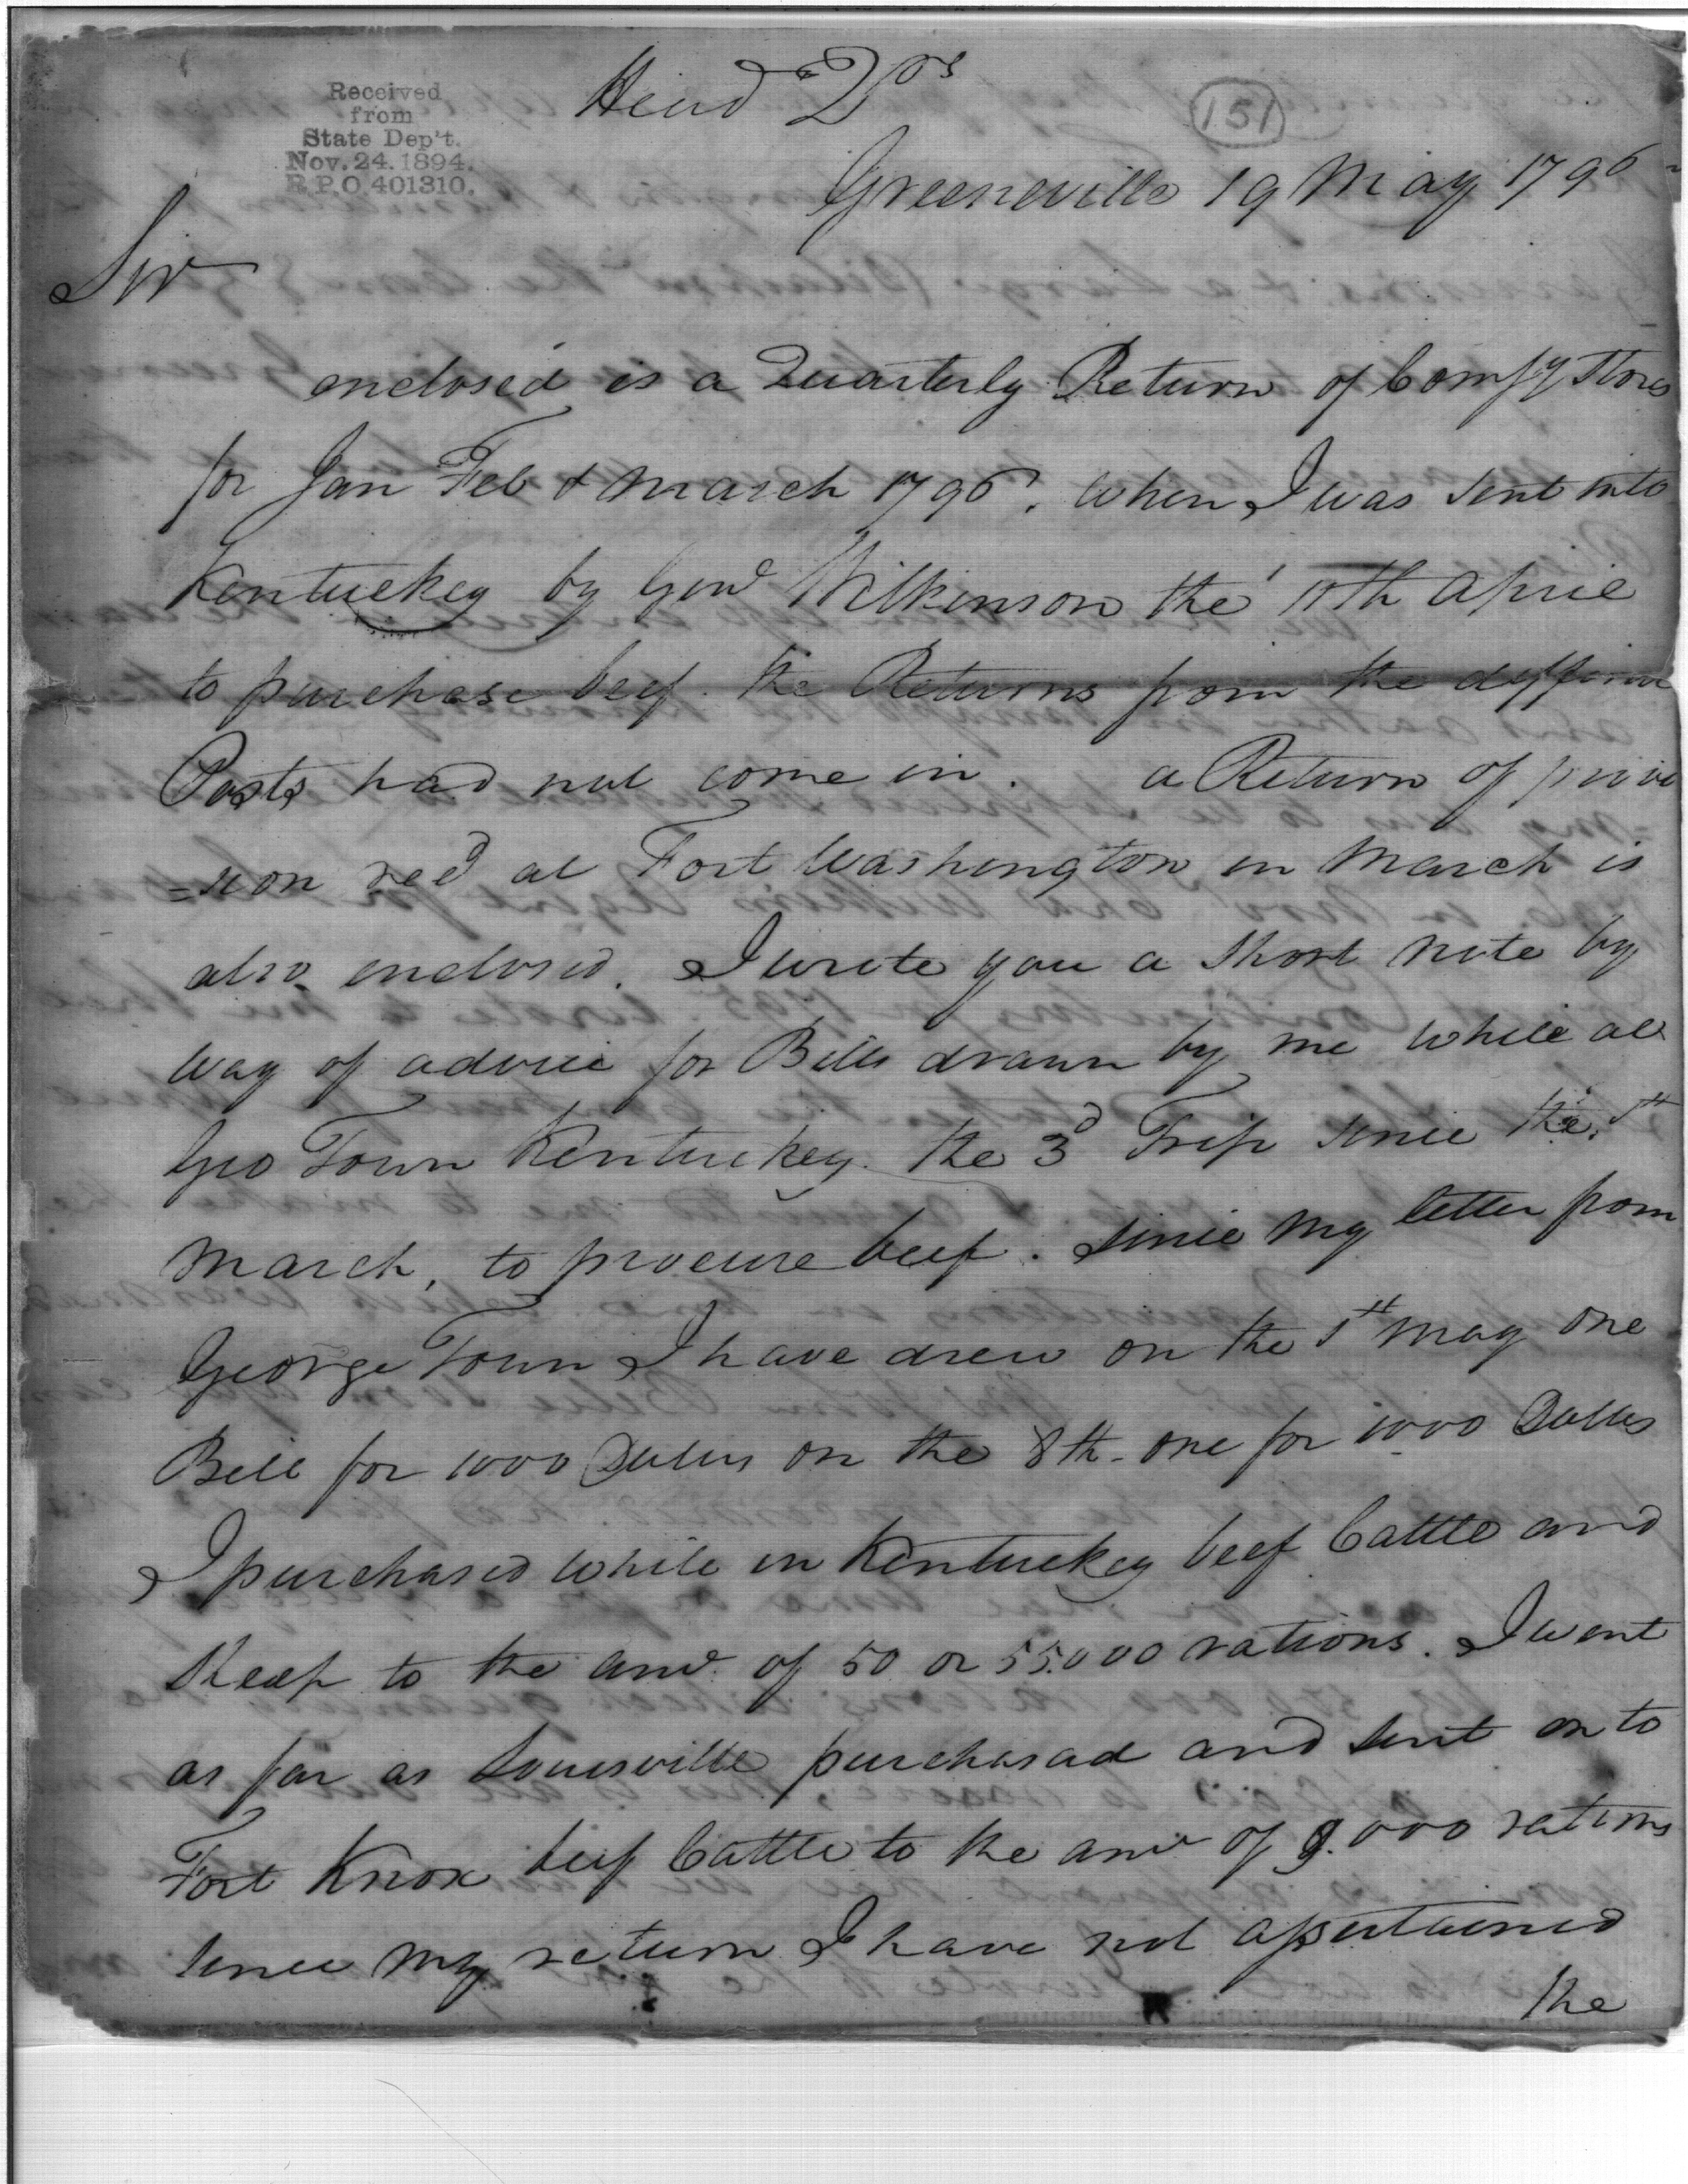 Received
from
State Dep't.
Nov. 24. 1894.
R.P.O. 401310.
Head Qrs
151
Greeneville 19 May 1796
Sir
enclosed is a Quarterly Return of Comsy Stores
for Jan Feb & March 1796. When I was sent into
Kentuckey by Genl Wilkinson the 11th April
to purchase beef. the Returns from the different
Posts had not come in. a Return of provi
=sion recd at Fort Washington in March is
also enclosed. I wrote you a short note by
way of advice for Bills drawn by me while at
Geo Town Kentuckey. the 3d Trip since the 1st
March, to procure beef. since my letter from
George Town I have drew on the 1st May one
Bill for 1000 Dollars on the 8th one for 1000 Dollars
I purchased while in Kentuckey beef Cattle and
Sheep to the amt. of 50 or 55.000 rations. I went
as far as Louisville purchasad and sent on to
Fort Knox beef Cattle to the amt of 9.000 rations
since my return I have not assertained
the